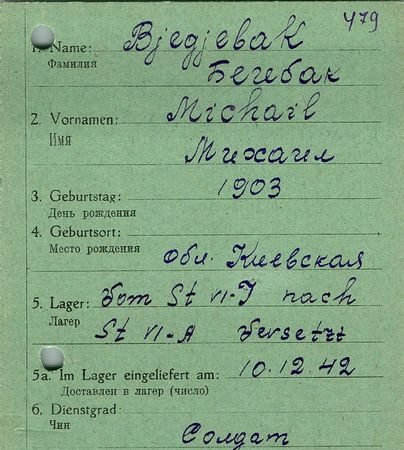 479
1. Name: Bjegjebak
Фамилия Бегебак
2. Vornamen: Michail
Имя Михаил
3. Geburtstag: 1903
День рождения
4. Geburtsort:
Место рождения обл. Киевская
5. Lager: Vom St VI-J nach
Лагерь St VI-A Versetzt
5a. Im Lager eingeliefert am: 10.12.42
Доставлен в лагерь (число)
6. Dienstgrad:
Чин Солдат